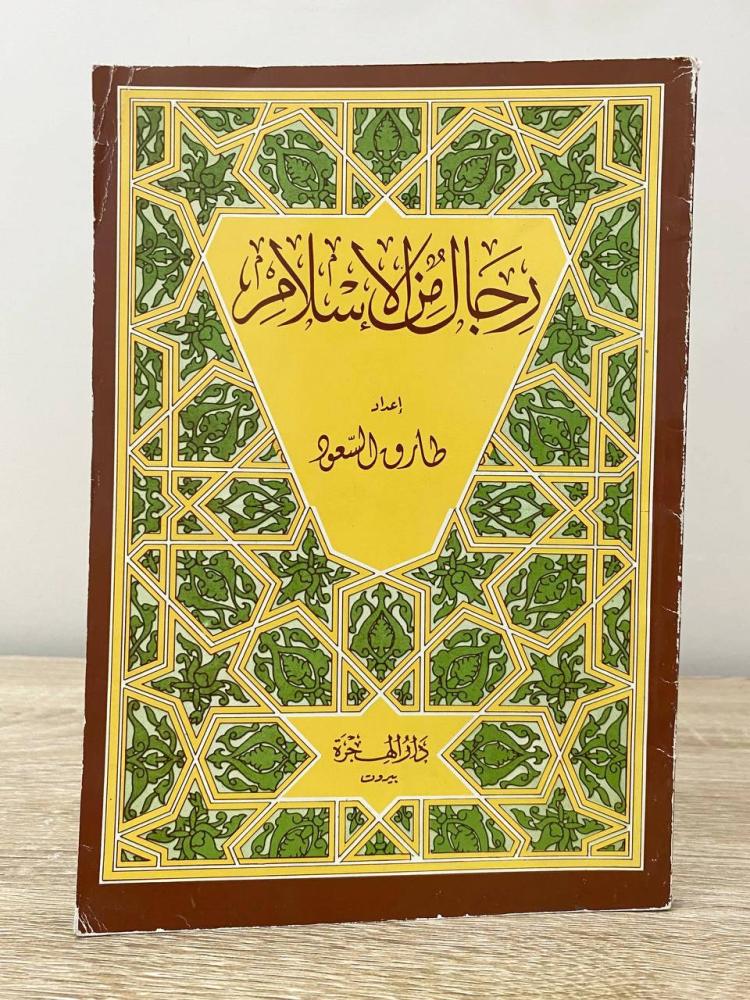 رِجَال مُن الإسْلامِ
إعداد
طارق السّعود
دَارُ الهِجْرَة
بيروت